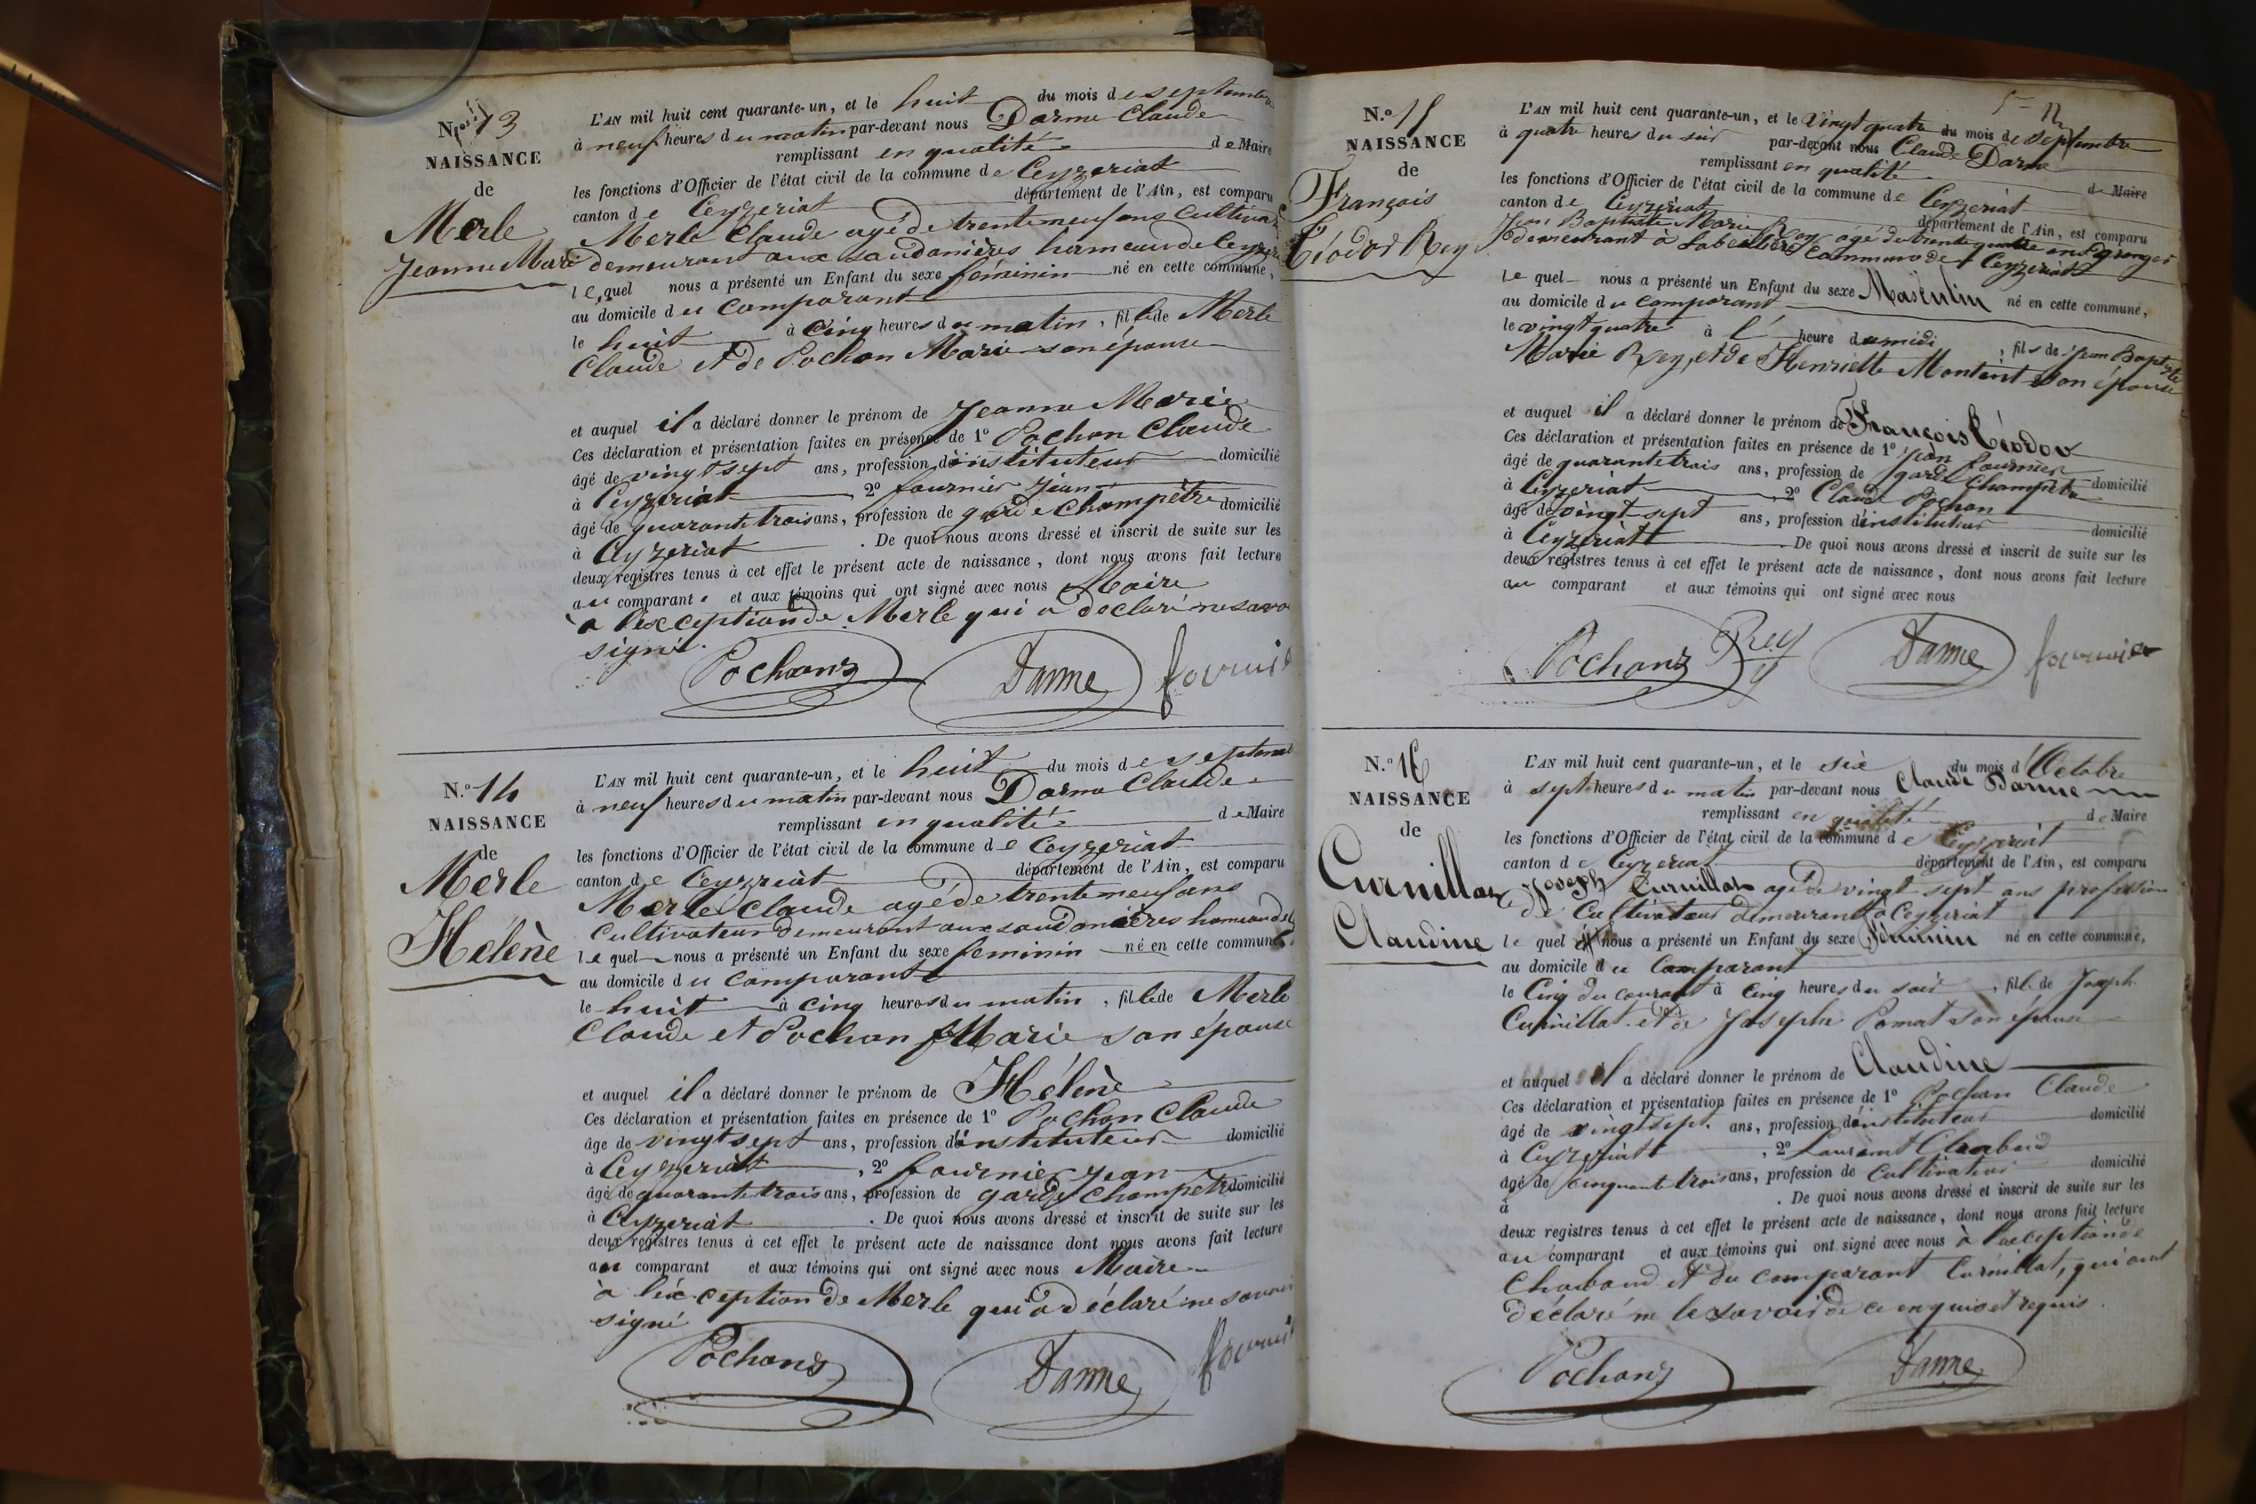 N.º 13
NAISSANCE
de
Merle
Jeanne Marie
L'AN mil huit cent quarante-un, et le huit du mois de septembre
à neuf heures du matin par-devant nous Darme Claude
remplissant en qualité de Maire
les fonctions d'Officier de l'état civil de la commune de Ceyzeriat
canton de Ceyzeriat département de l'Ain, est comparu
Merle Claude agé de trente neuf ans Cultiva
demeurant aux Soudanières hameau de Ceyzeri
lequel nous a présenté un Enfant du sexe feminin né en cette commune,
au domicile du comparant
le huit à cinq heures du matin, fille de Merle
Claude et de Pochon Marie son épouse
et auquel il a déclaré donner le prénom de Jeanne Marie
Ces déclaration et présentation faites en présence de 1º Pochon Claude
âgé de vingt sept ans, profession d'instituteur domicilié
à Ceyzeriat, 2º fournier Jean
âgé de quarante trois ans, profession de garde champètre domicilié
à Ceyzeriat. De quoi nous avons dressé et inscrit de suite sur les
deux registres tenus à cet effet le présent acte de naissance, dont nous avons fait lecture
au comparant et aux témoins qui ont signé avec nous Maire
à l'exception de Merle qui a déclaré ne savo
signé.
Pochon Darme fournie
N.º 14
NAISSANCE
de
Merle
Hélène
L'AN mil huit cent quarante-un, et le huit du mois de septemb
à neuf heures du matin par-devant nous Darme Claude
remplissant en qualité de Maire
les fonctions d'Officier de l'état civil de la commune de Ceyzeriat
canton de Ceyzeriat département de l'Ain, est comparu
Merle Claude agé de trente neuf ans
Cultivateur demeurant aux soudanières hameau de
lequel nous a présenté un Enfant du sexe feminin né en cette commune
au domicile du comparant
le huit à cinq heures du matin, fille de Merle
Claude et Pochon Marie son épouse
et auquel il a déclaré donner le prénom de Hélène
Ces déclaration et présentation faites en présence de 1º Pochon Claude
âge de vingt sept ans, profession d'instituteur domicilié
à Ceyzeriat, 2º fournier Jean
âgé de quarante trois ans, profession de garde champètre domicilié
à Ceyzeriat. De quoi nous avons dressé et inscrit de suite sur les
deux registres tenus à cet effet le présent acte de naissance dont nous avons fait lecture
au comparant et aux témoins qui ont signé avec nous Maire
à l'exception de Merle qui a déclaré ne savoir
signé
Pochon Darme fournie
N.º 15
NAISSANCE
de
François
Téodor Rey
L'AN mil huit cent quarante-un, et le vingt quatre du mois de septembre
à quatre heures du soir par-devant nous Claude Darme
remplissant en qualité de Maire
les fonctions d'Officier de l'état civil de la commune de Ceyzeriat
canton de Ceyzeriat département de l'Ain, est comparu
Jean Baptiste Marie Rey, âgé de trente quatre ans granger
demeurant à commune de Ceyzeriat
lequel nous a présenté un Enfant du sexe Masculin né en cette commune,
au domicile du comparant
le vingt quatre à l' heure de midi, fils de Jean Baptiste
Marie Rey, et de Henriette Montent son épouse
et auquel il a déclaré donner le prénom de François Téodor
Ces déclaration et présentation faites en présence de 1º Jean fournier
âgé de quarante trois ans, profession de garde Champètre domicilié
à Ceyzeriat, 2º Claude Pochon
âgé de vingt-sept ans, profession d'instituteur domicilié
à Ceyzeriat. De quoi nous avons dressé et inscrit de suite sur les
deux registres tenus à cet effet le présent acte de naissance, dont nous avons fait lecture
au comparant et aux témoins qui ont signé avec nous
Pochon Rey Darme fournier
N.º 16
NAISSANCE
de
Curnillat
Claudine
L'AN mil huit cent quarante-un, et le six du mois d'Octobre
à sept heures du matin par-devant nous Claude Darme
remplissant en qualité de Maire
les fonctions d'Officier de l'état civil de la commune de Ceyzeriat
canton de Ceyzeriat département de l'Ain, est comparu
Joseph Curnillat agé de vingt sept ans profession
de Cultivateur demeurant à Ceyzeriat
lequel nous a présenté un Enfant du sexe féminin né en cette commune,
au domicile du Comparant
le Cinq du courant à cinq heures du soir, fille de Joseph
Curnillat et de Josephe Pomat son épouse
et auquel il a déclaré donner le prénom de Claudine
Ces déclaration et présentation faites en présence de 1º Pochon Claude
âgé de vingt sept ans, profession d'instituteur domicilié
à Ceyzeriat, 2º Laurent Chabaud
âgé de cinquante trois ans, profession de Cultivateur domicilié
à . De quoi nous avons dressé et inscrit de suite sur les
deux registres tenus à cet effet le présent acte de naissance, dont nous avons fait lecture
au comparant et aux témoins qui ont signé avec nous à l'acception de
Chabaud et du comparant Curnillat, qui ont
déclaré ne le savoir de ce enquis et requis.
Pochon Darme